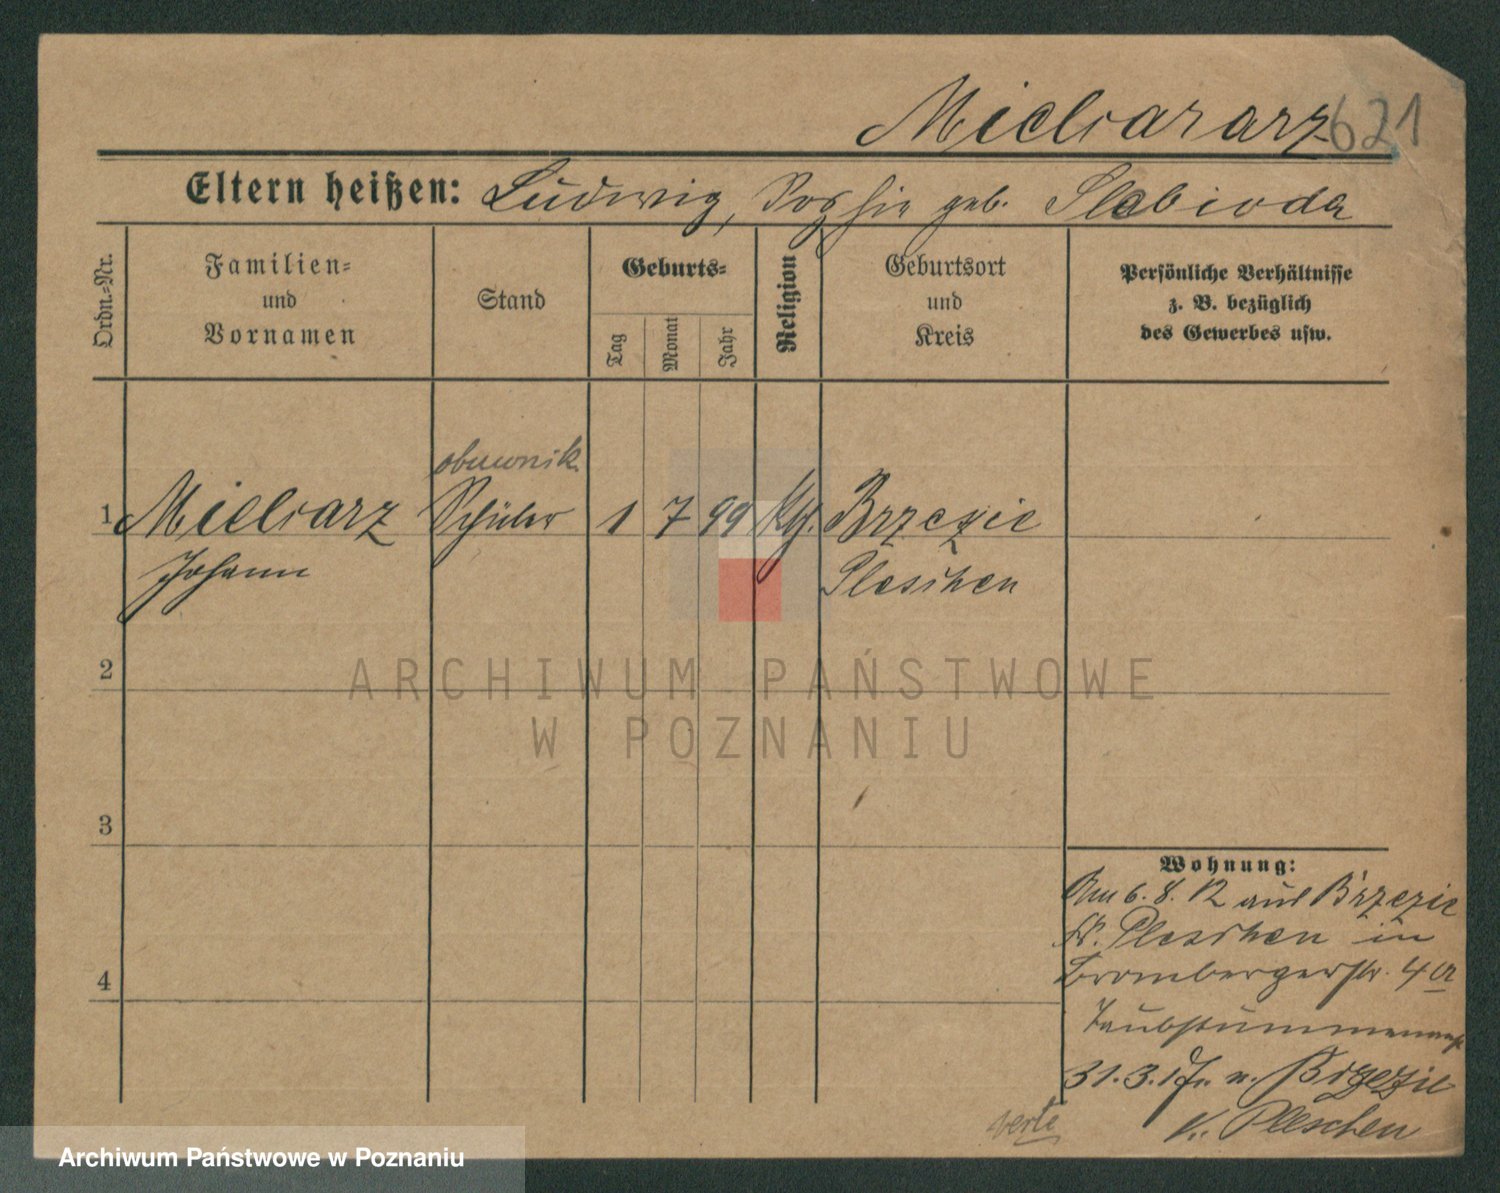 Mielcararz 621
Eltern heißen: Ludwig, Sophie geb. Slabioda
Ordn.=Nr.
Familien=
und
Vornamen
Stand
Geburts=
Tag
Monat
Jahr
Religion
Geburtsort
und
Kreis
Persönliche Verhältnisse
z. B. bezüglich
des Gewerbes usw.
obuwnik
1 Mielcarz Schüler 1 7 99 Kth. Brzezie
Johann Pleschen
2
ARCHIWUM PAŃSTWOWE
W POZNANIU
3
4
Wohnung:
Am 6. 8. 12 aus Brzezie
Kr. Pleschen in
Brombergerstr. 4a
Taubstummenanst
31. 3. 17. n. Brzezie
K. Pleschen
verte
Archiwum Państwowe w Poznaniu